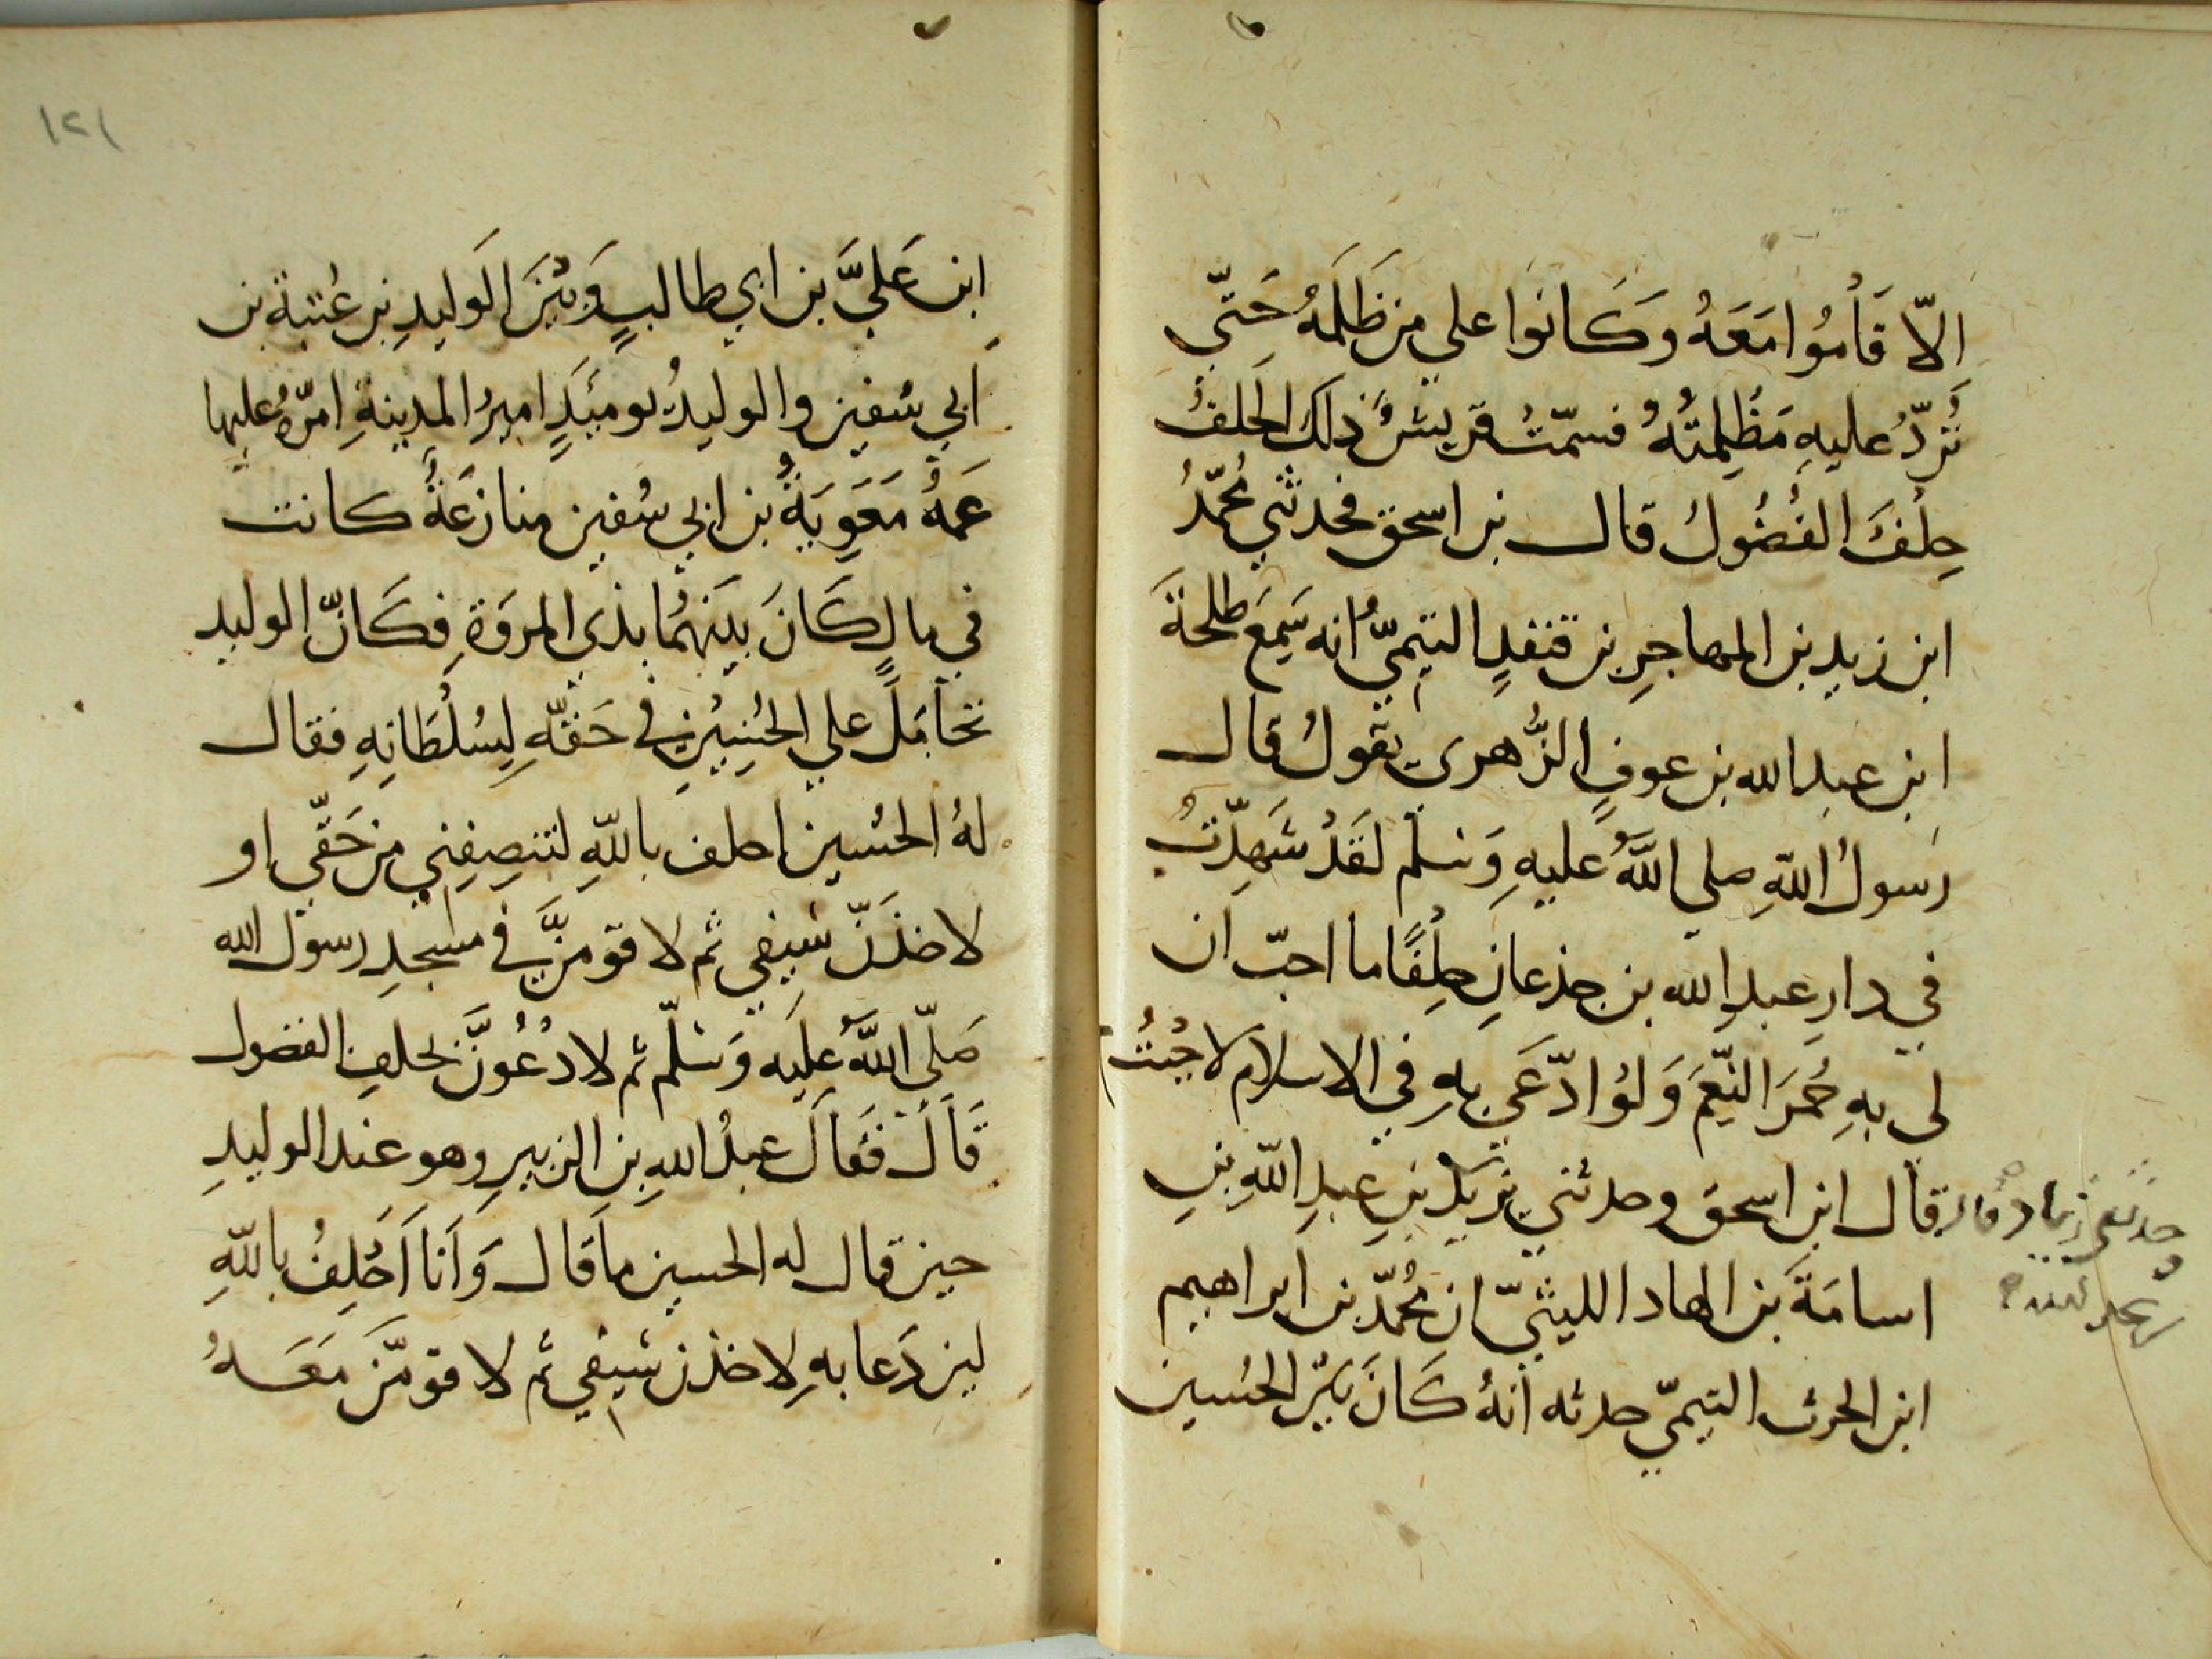 الّا قَامُوا مَعَهُ وَكَانَوا علي من ظَلَمَهُ حَتّي
تُرَدُّ عليهِ مَظْلِمتُهُ فسمّتْ قريشٌ ذلك الحلفَ
حِلْفَ الفُضُول قال بن اسحق فحدثني مُحمّدُ
ابن زيد بن المهاجرِ بن قنفدٍ التيميّ انه سَمِعَ طلحةَ
ابن عبدالله بن عوفٍ الزُّهرى يقولُ قال
رَسولُ اللّهِ صلي اللَّهُ عليهِ وَسلم لَقَدْ شَهِدّتُ
في دارِ عبدِ الله بن جذعانِ حِلْفًا ما احبّ ان
لي بهِ حُمرَ النّعَمِ وَلوْ ادّعَي بهِ في الاسلام لاجبْتُ
قال ابن اسحق وحدثني يزيد بنِ عبدِ اللّهِ بنِ
اسامَةَ بن الهاد الليثيّ ان مُحمّد بن ابراهيم
ابن الحرث التيميّ حدثه أنهُ كَانَ بيْنَ الحُسين
حدثنى زياد قال
١٢١
ابن عَليَّ بن ابي طالبٍ وَبيْنَ الَوليدِ بن عُتبة بن
ابي سُفين والوليدُ يومئذٍ اميرُ المدينةِ امرّهُ عليها
عَمهُ مَعَوِيَةُ بن ابي سُفين منازعَةُ كانت
في مالٍ كَانَ بينَهُما بذي المروَةِ فكَانّ الوليد
تحامَلَ علي الحُسينِ في حَقّهِ لِسُلْطَانِهِ فقال
لهُ الحُسين احلف باللّهِ لتنصِفِني من حَقّي او
لاخذَنّ سَيفي ثم لاقومنَّ في مسجدِ رسول الله
صَلّي اللَّهُ عليَه وَسَلّم ثم لادْعُوَنَّ بحلفِ الفضول
قَالَ فَقالَ عبدُ اللهِ بن الزبيرِ وهو عند الوليدِ
حين قال له الحسين ماقَال وَأنا أَحْلِفُ باللّهِ
لين دَعا بهِ لاخذن سَيفي ثم لاقومَّن مَعَهُ